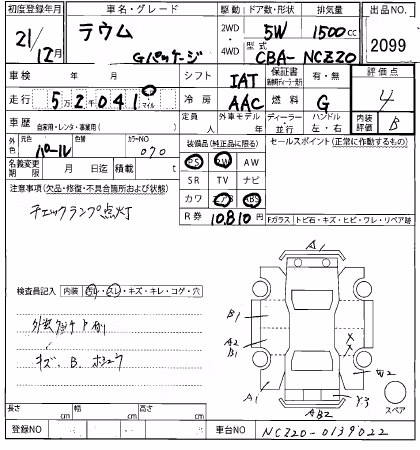 初度登録年月 車名・グレード 駆動 ドア数・形状 排気量 出品NO.
21/12月 ラウム Gパッケージ 2WD 4WD 5W 1500cc 2099
型式 CBA- NCZ20
車検 年 月 シフト IAT 保証書 有・無 評価点
走行 5万2千041 マイル 冷房 AAC 燃料 G 4
車歴 自家用・レンタ・事業用( ) 定員 人 外車モデル 年 ディーラー・並行 ハンドル 左・右 内装評価 B
外色 元色 パール 色替 カラーNO 070 装備品(純正品に限る) セールスポイント(正常に作動するもの)
名義変更期限 月 日迄 積載 t PS PW AW
注意事項(欠品・修復・不具合箇所および状態) SR TV ナビ
チェックランプ点灯 カワ エアB ABS
R券 10810 Fガラス トビ石・キズ・ヒビ・ワレ・リペア跡
検査員記入 内装 汚レ・スレ・キズ・キレ・コゲ・穴
キズ、B、
A1
B1
A2
B1
A1
XX
W2
Y3
AB2
スペア
長さ cm 幅 cm 高さ cm
登録NO 車台NO NCZ20-0139022